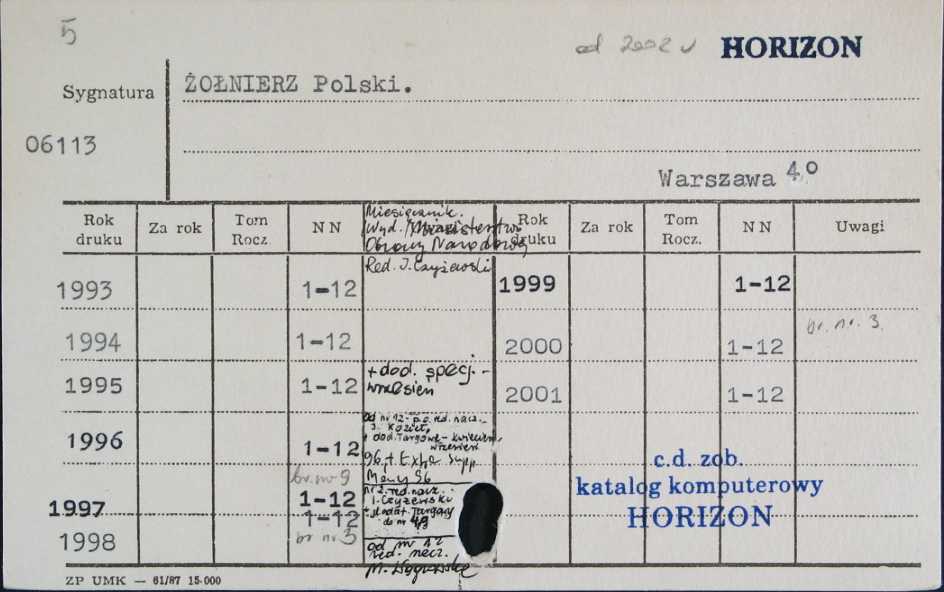 5
od 2002 HORIZON
ŻOŁNIERZ Polski.
Sygnatura
06113
Warszawa 4°
Rok druku Za rok Tom Rocz NN Miesięcznik. Rok druku Za rok Tom Rocz. NN Uwagi
Wyd. Ministerstwo
Obrony Narodowej
Red. J. Czyżewski
1993 1-12 1999 1-12
br. nr. 3.
1994 1-12 2000 1-12
1995 1-12 + dod. specj. - 2001 1-12
wrzesień
1996 1-12 od nr 12 - p.o. red. nacz.
J.
+ dod. Targowe - kwiecień,
wrzesień
96 + Extra Supp
96
br. nr 9
1997 1-12 nr 2. red. nacz.
J. Czyżewski
1-12 Targowy
do nr
1998 br nr 3
od nr 12
red. nacz.
M.
c.d. zob.
katalog komputerowy
HORIZON
ZP UMK — 61/87 15·000